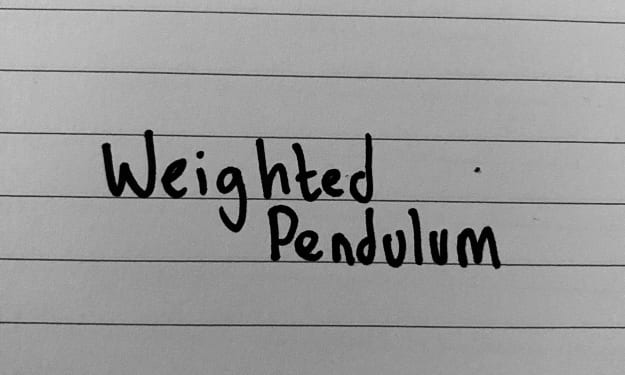 Weighted
Pendulum